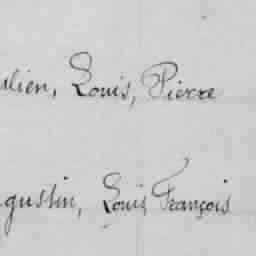 ulien, Louis, Pierre
gustin, Louis François